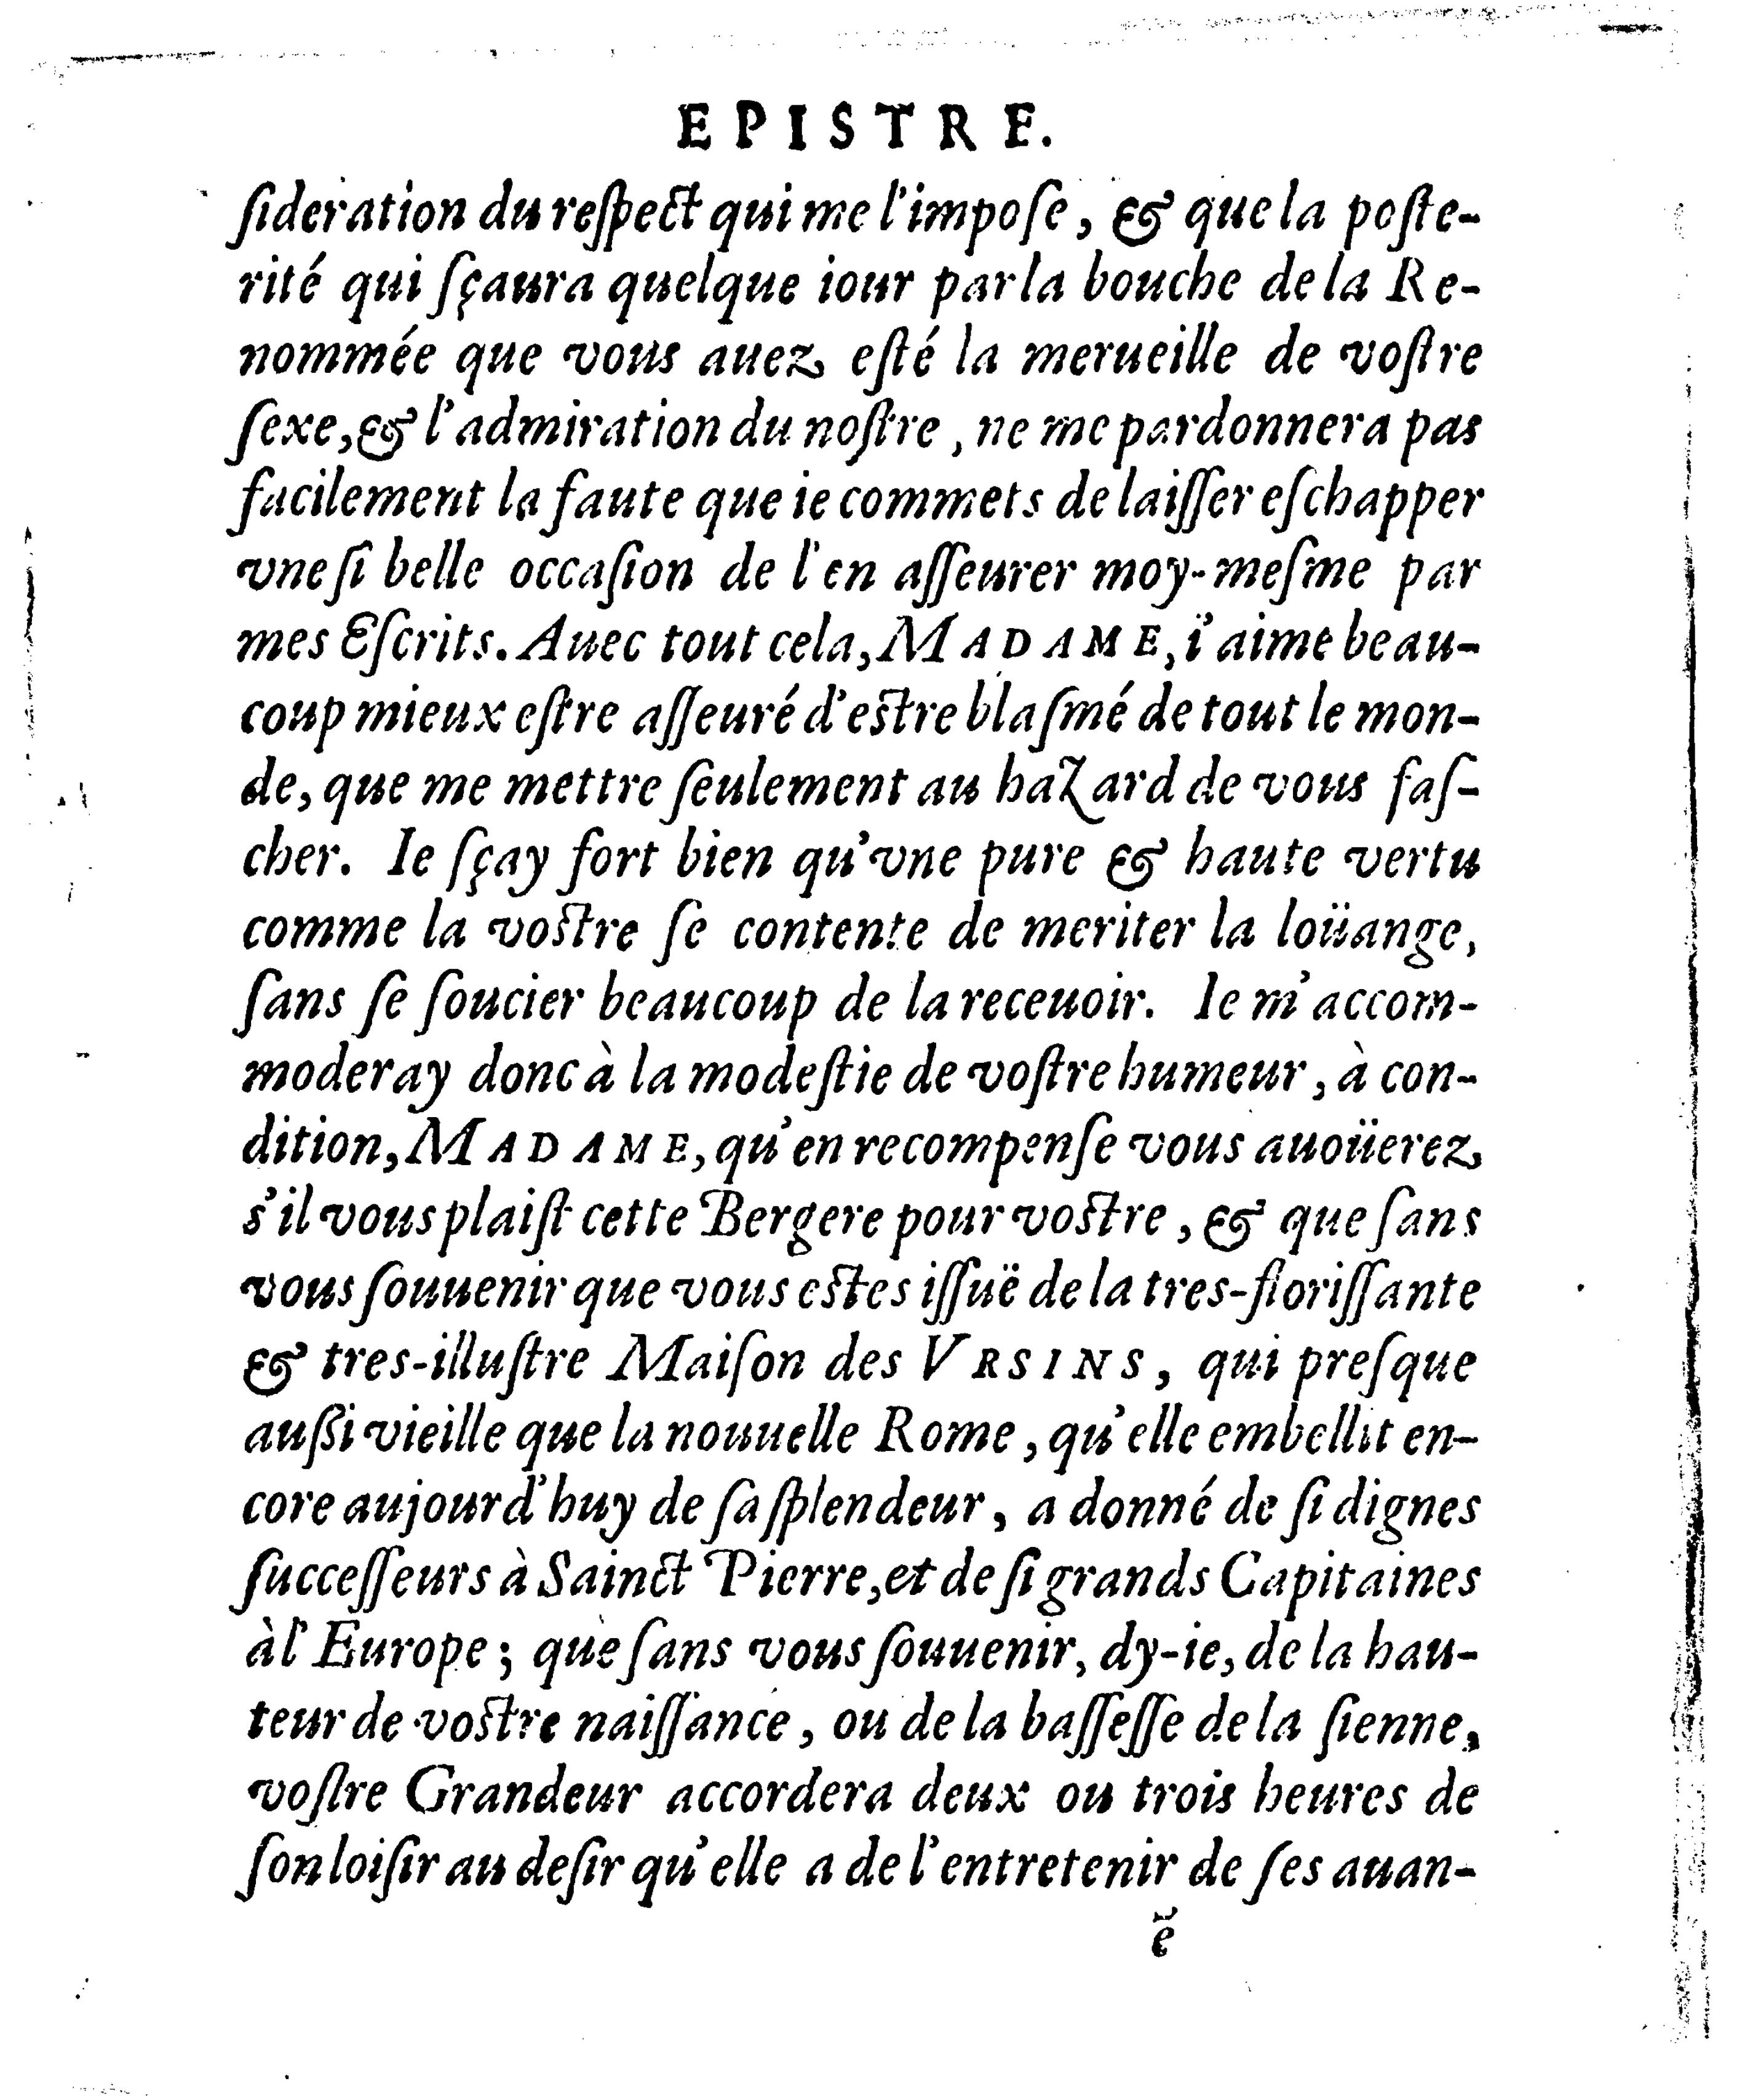 EPISTRE.
ſideration du reſpect qui me l'impoſe, & que la poſte-
rité qui ſçaura quelque iour par la bouche de la Re-
nommée que vous auez eſté la merueille de voſtre
ſexe, & l'admiration du noſtre, ne me pardonnera pas
facilement la faute que ie commets de laiſſer eſchapper
vne ſi belle occaſion de l'en aſſeurer moy-meſme par
mes Eſcrits. Auec tout cela, MADAME, i'aime beau-
coup mieux eſtre aſſeuré d'eſtre blaſmé de tout le mon-
de, que me mettre ſeulement au hazard de vous faſ-
cher. Ie ſçay fort bien qu'vne pure & haute vertu
comme la voſtre ſe contente de meriter la loüange,
ſans ſe ſoucier beaucoup de la receuoir. Ie m'accom-
moderay donc à la modeſtie de voſtre humeur, à con-
dition, MADAME, qu'en recompenſe vous auoüerez
s'il vous plaiſt cette Bergere pour voſtre, & que ſans
vous ſouuenir que vous eſtes iſſuë de la tres-floriſſante
& tres-illuſtre Maiſon des VRSINS, qui preſque
auſſi vieille que la nouuelle Rome, qu'elle embellit en-
core aujourd'huy de ſa ſplendeur, a donné de ſi dignes
ſucceſſeurs à Sainct Pierre, et de ſi grands Capitaines
à l'Europe; que ſans vous ſouuenir, dy-ie, de la hau-
teur de voſtre naiſſance, ou de la baſſeſſe de la ſienne,
voſtre Grandeur accordera deux ou trois heures de
ſon loiſir au deſir qu'elle a de l'entretenir de ſes auan-
ĕ